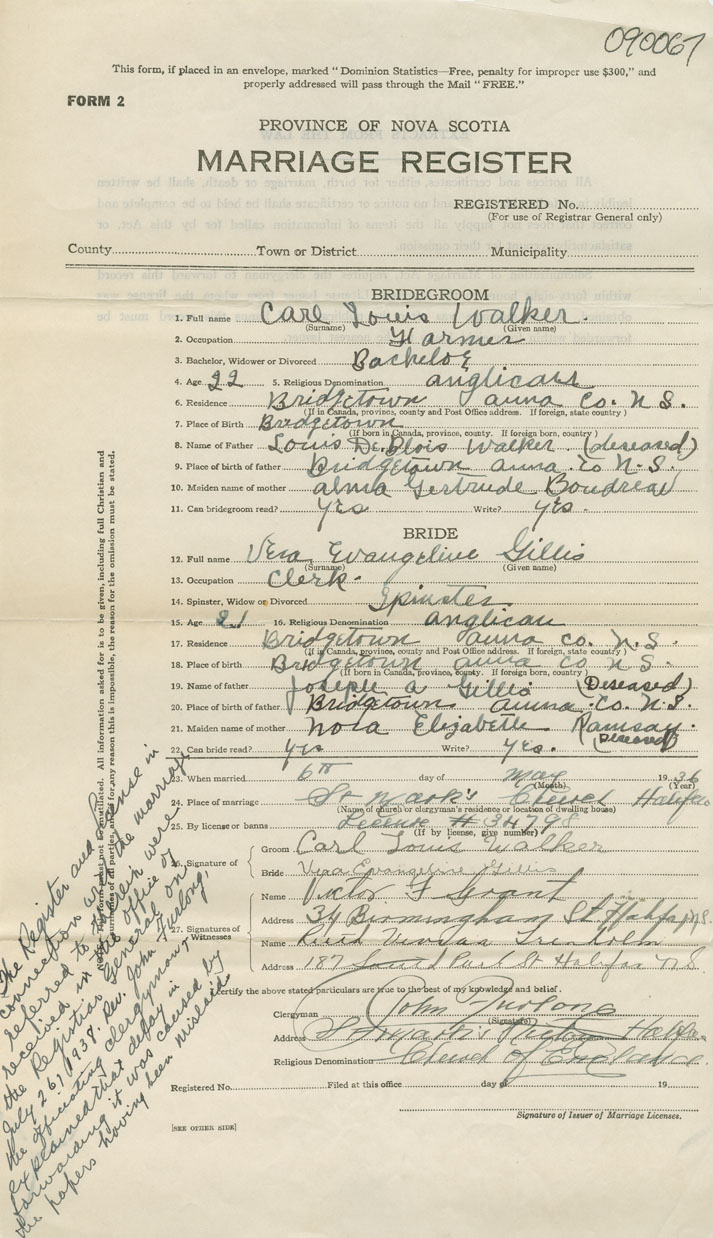 090067
This form, if placed in an envelope, marked "Dominion Statistics—Free, penalty for improper use $300," and
properly addressed will pass through the Mail "FREE."
FORM 2
PROVINCE OF NOVA SCOTIA
MARRIAGE REGISTER
REGISTERED No.
(For use of Registrar General only)
County Town or District Municipality
BRIDEGROOM
1. Full name Carl Louis Walker.
(Surname) (Given name)
2. Occupation Farmer
3. Bachelor, Widower or Divorced Bachelor
4. Age 22 5. Religious Denomination anglican
6. Residence Bridgetown anna Co. N S.
(If in Canada, province, county and Post Office address. If foreign, state country)
7. Place of Birth Bridgetown
(If born in Canada, province, county. If foreign born, country)
8. Name of Father Louis DeBlois Walker (deseased)
9. Place of birth of father Bridgetown anna. Co N-S.
10. Maiden name of mother alma Gertrude Boudreau
11. Can bridegroom read? yes Write? yes.
BRIDE
12. Full name Vera Evangeline Gillis
(Surname) (Given name)
13. Occupation Clerk.
14. Spinster, Widow or Divorced Spinster
15. Age 21 16. Religious Denomination anglican
17. Residence Bridgetown anna co. N.S.
(If in Canada, province, county and Post Office address. If foreign, state country)
18. Place of birth Bridgetown anna co N.S.
(If born in Canada, province, county. If foreign born, country)
19. Name of father Joseph a Gillis (Deseased)
20. Place of birth of father Bridgetown anna. Co. N.S.
21. Maiden name of mother Nora Elizabeth Ramsay.
(Deseased)
22. Can bride read? yes Write? yes.
23. When married 6th day of May 1936
(Month) (Year)
24. Place of marriage St Mark's Church Halifax
(Name of church or clergyman's residence or location of dwelling house)
25. By license or banns License # 34798
(If by license, give number)
26. Signature of
Groom Carl Louis Walker
Bride Vera Evangeline Gillis
27. Signatures of
Witnesses
Name Victor F Grant
Address 34 Birmingham St. Halifax N.S.
Name Vivian
Address 187 South Park St Halifax N.S.
I certify the above stated particulars are true to the best of my knowledge and belief.
Clergyman John Furlong
(Signature)
Address St Mark's Halifax
Religious Denomination Church of England.
Registered No. Filed at this office day of 19
Signature of Issuer of Marriage Licenses.
[SEE OTHER SIDE]
NOTE—This form must not be mutilated. All information asked for is to be given, including full Christian and
Surnames of all parties, and if for any reason this is impossible, the reason for the omission must be stated.
The Register and License in
connection with the marriage
referred to herein were
received in the office of
the Registrar General on
July 26, 1938. Rev. John Furlong,
the officiating clergyman,
explained that delay in
forwarding it was caused by
the papers having been mislaid.